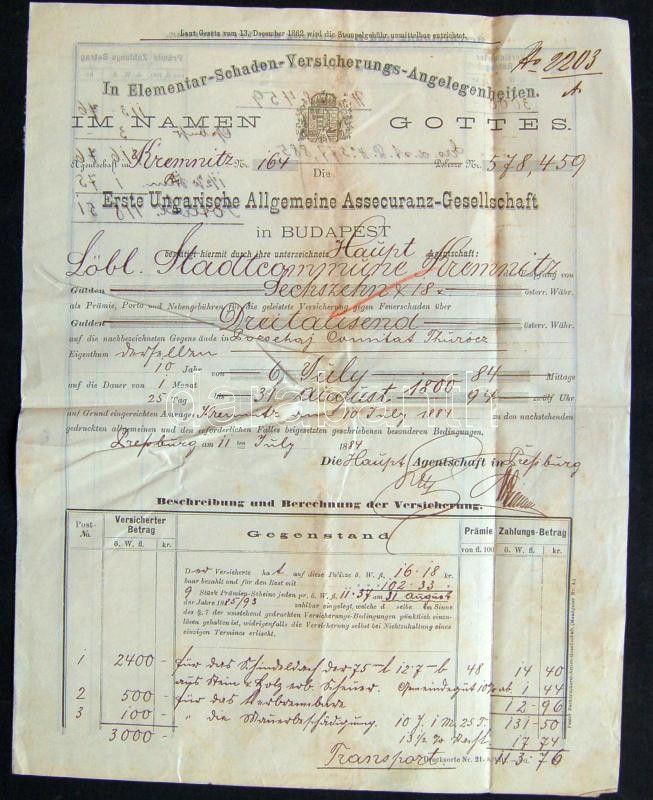 Laut Gesetz vom 13. December 1862 wird die Stempelgebühr unmittelbar entrichtet.
No 2203
In Elementar-Schaden-Versicherungs-Angelegenheiten.
IM NAMEN GOTTES.
Agentschaft in Kremnitz Nr. 164 Polizze Nr. 578,459
Die
Erste Ungarische Allgemeine Assecuranz-Gesellschaft
in BUDAPEST
bestätigt hiermit durch ihre unterzeichnete Haupt Agentschaft:
Löbl. Stadtcommune Kremnitz den Empfang von
Gulden Sechszehn x 18 österr. Währ.
als Prämie, Porto und Nebengebühren für die geleistete Versicherung gegen Feuerschaden über
Gulden Dreitausend österr. Währ.
auf die nachbezeichneten Gegenstände in Comitat Thurócz
Eigenthum derselben
10 Jahr von 6 July 1884 Mittags
auf die Dauer von 1 Monat
25 Tag bis 31 August 1894 zwölf Uhr
auf Grund eingereichten Antrages Kremnitz den 10 July 1884 zu den nachstehenden
gedruckten allgemeinen und den erforderlichen Falles beigesetzten geschriebenen besonderen Bedingungen.
Preßburg am 11 ten July 1884
Die Haupt Agentschaft in Preßburg
darabanth.com
Beschreibung und Berechnung der Versicherung.
Post-No. Versicherter Betrag Gegenstand Prämie Zahlungs-Betrag
ö. W. fl. kr. von fl. 100 ö. W. fl. kr.
Der Versicherte hat auf diese Polizze ö. W. fl. 16·18 kr.
baar bezahlt und für den Rest mit 102·33
9 Stück Prämien-Scheine jeden pr. ö. W. fl. 11·37 am 31 August
der Jahre 1885/93 zahlbar eingelegt, welche derselbe im Sinne
des § 7 der umstehend gedruckten Versicherungs-Bedingungen pünktlich einzu-
lösen gehalten ist, widrigenfalls die Versicherung selbst bei Nichteinhaltung eines
einzigen Termines erlischt.
1 2400 - für das Schindeldach der 75-t 127-b 48 14 40
aus Stein u Holz erb. Scheuer. Gemeindegut 10% ab 1 44
2 500 - für das Verbrennbare 12-96
3 100 - " die Mauerbeschädigung 10 J. 1 M. 25 T. 131-50
3000 - 13½ % 17 74
Transport. Drucksorte Nr. 21. 113-76